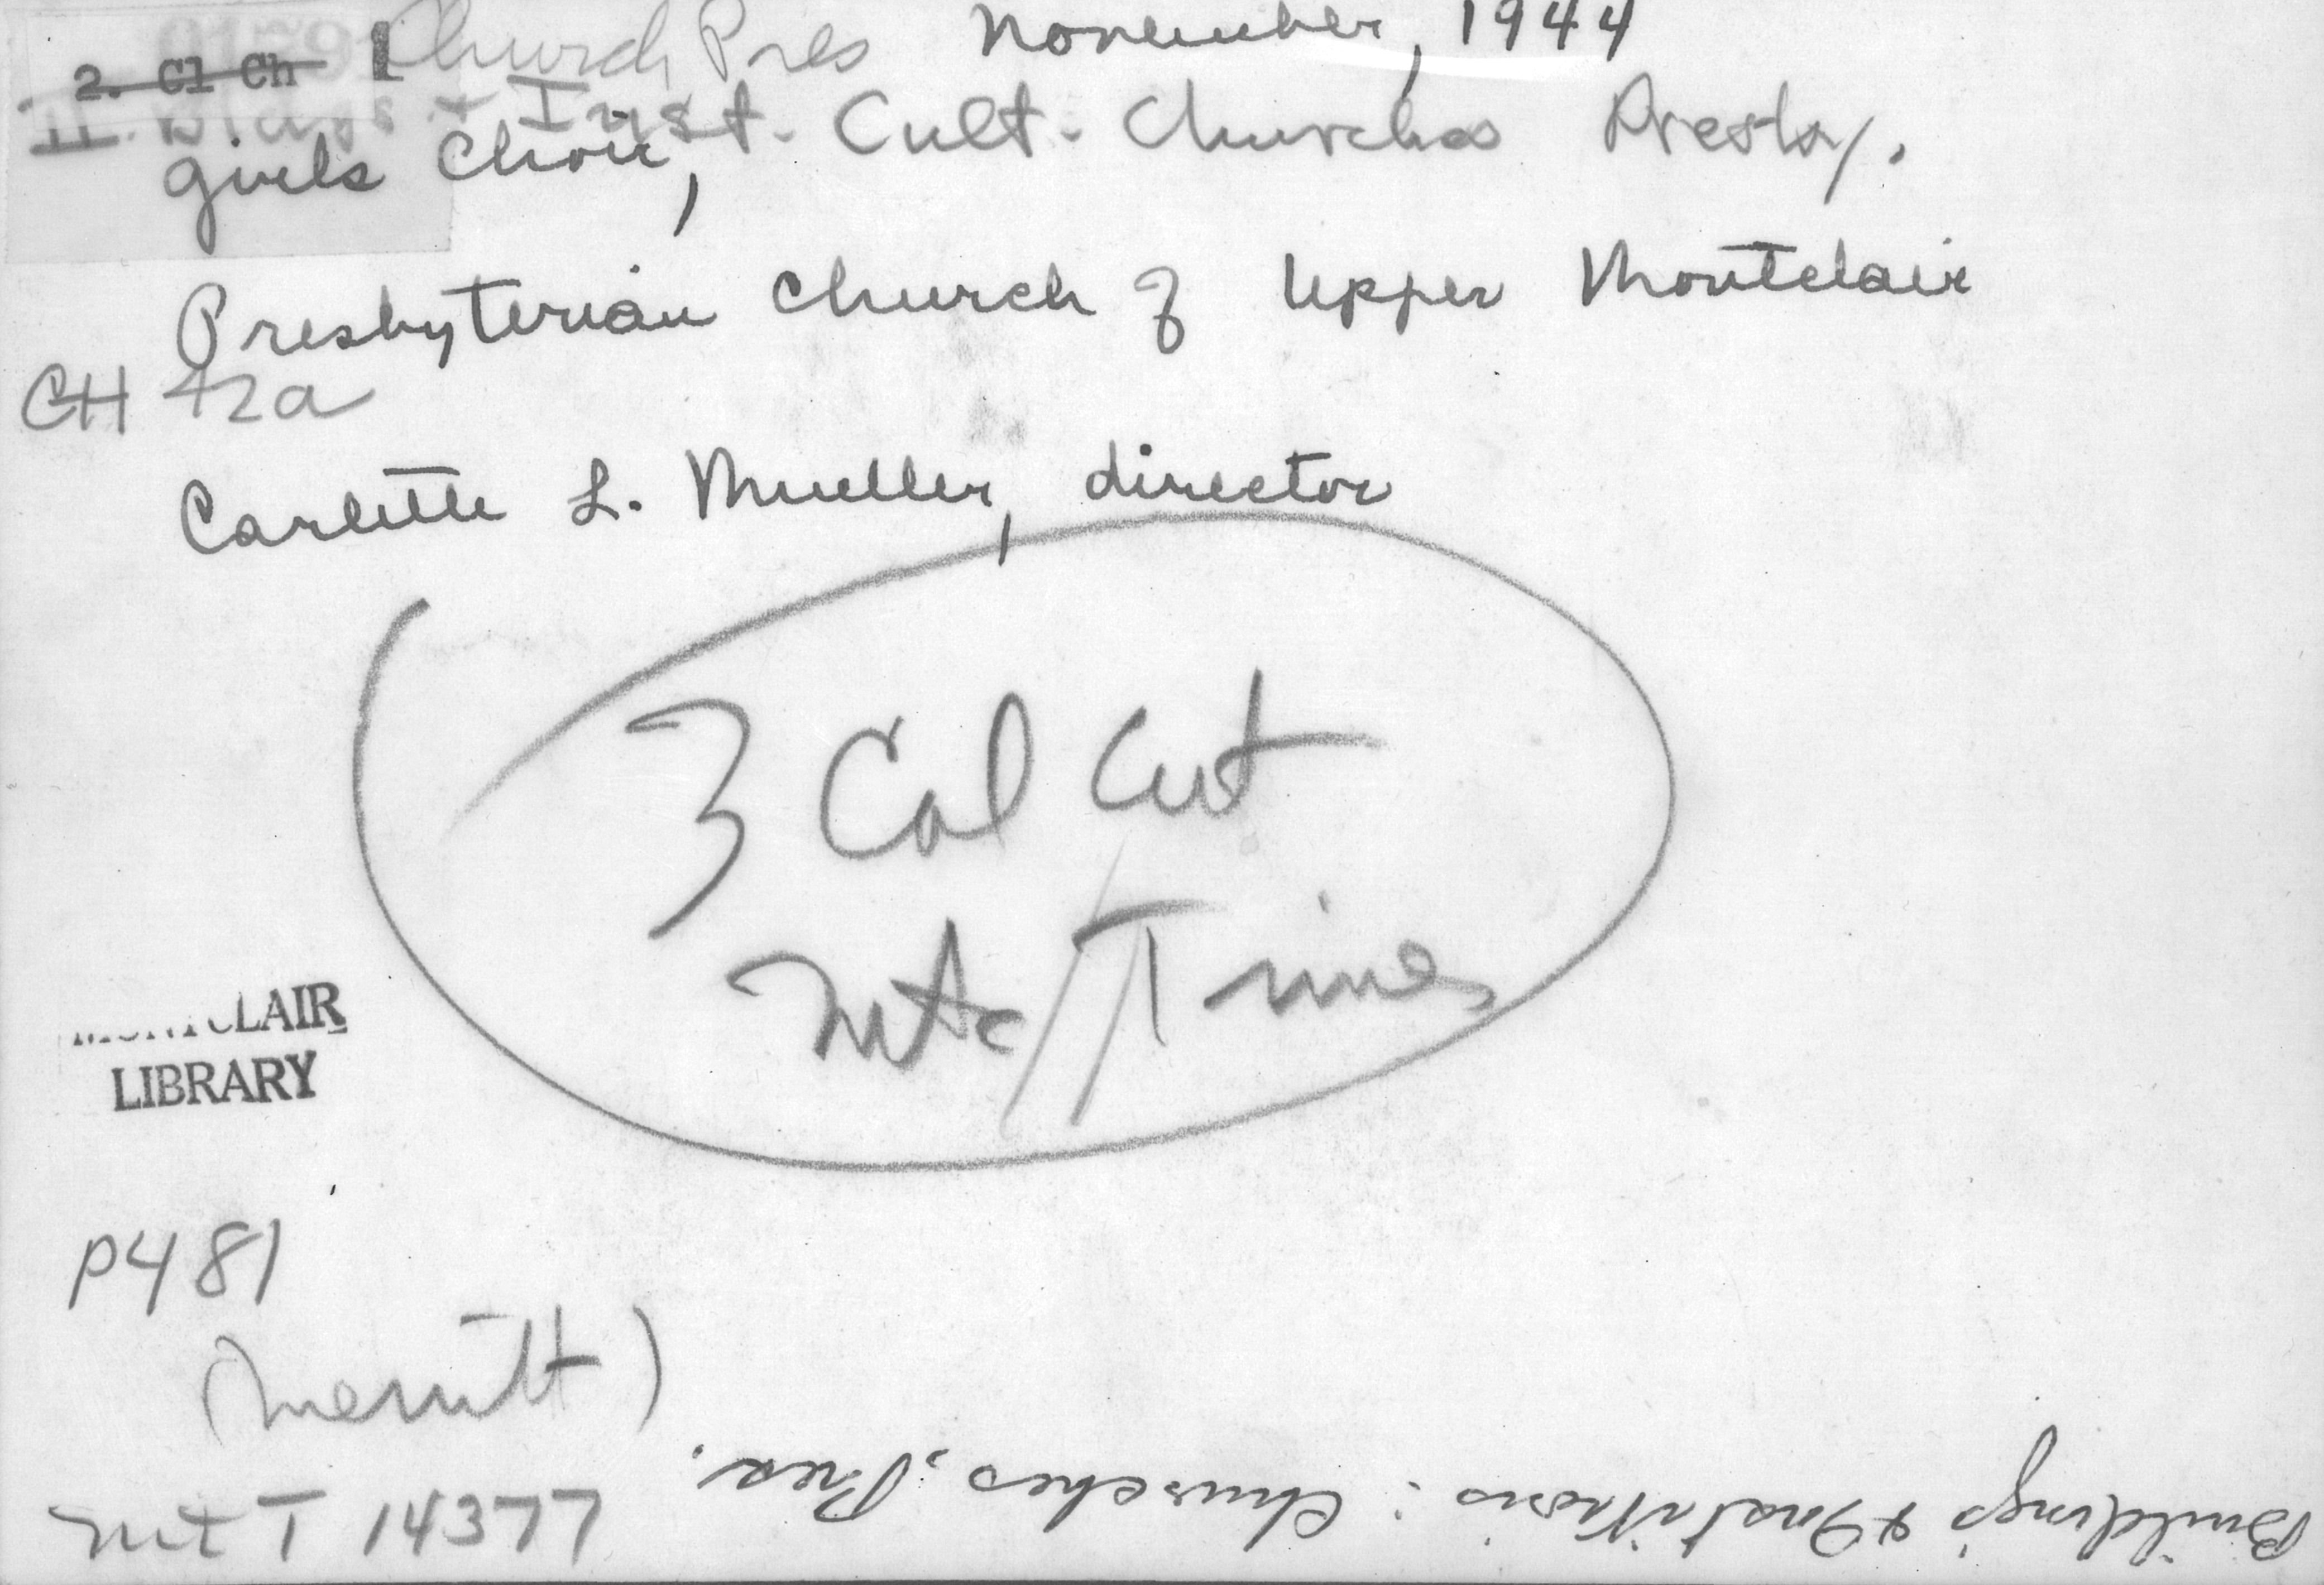 2. Cl Ch Church Pres November, 1944
II. Bldgs. + Inst. Cult. Churches Presby.
Girls Choir,
Presbyterian Church of Upper Montclair
CH 42a
Carlette L. Mueller, director
3 Col Cut
Mtc Times
MONTCLAIR
LIBRARY
P481
(Merritt)
Mt T 14377
Buildings & Institutions: Churches, Pres.